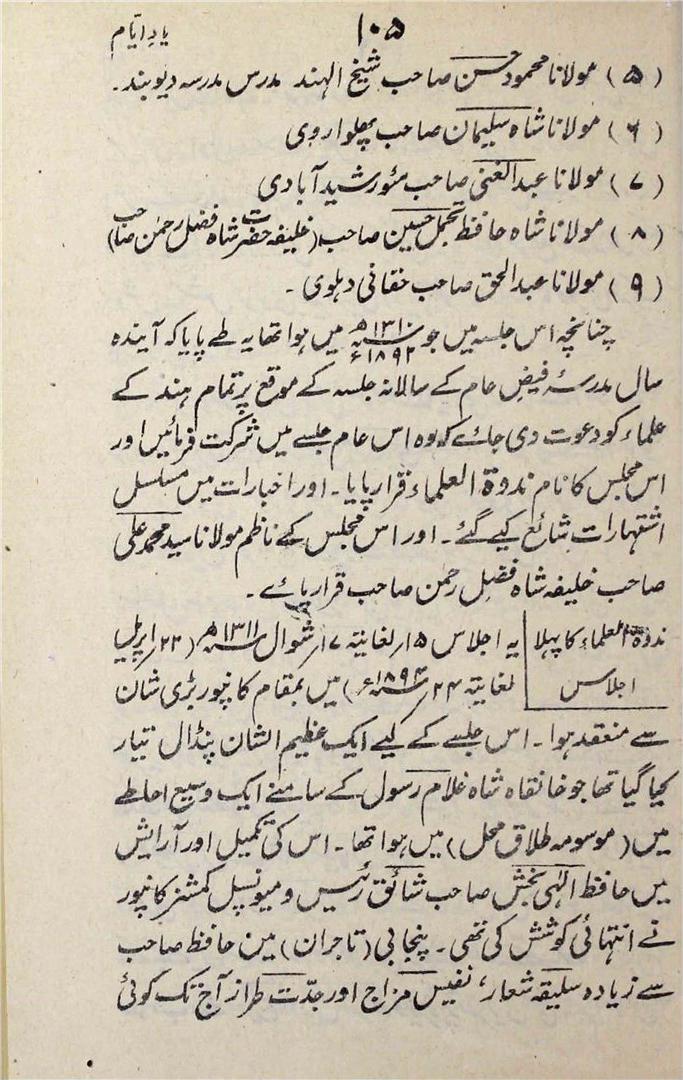 ۱۰۵
یادِ ایّام
(۵) مولانا محمود حسن صاحب شیخ الہند مدرس مدرسہ دیوبند۔
(۶) مولانا شاہ سلیمان صاحب پھلواروی
(۷) مولانا عبدالغنی صاحب مئو رشید آبادی
(۸) مولانا شاہ حافظ تجمل حسین صاحب (خلیفہ حضرت شاہ فضل رحمٰن صاحب)
(۹) مولانا عبدالحق صاحب حقانی دہلوی۔
چنانچہ اس جلسہ میں جو ۱۳۱۰ھ ۱۸۹۲ء میں ہوا تھا یہ طے پایا کہ آیندہ
سال مدرسۂ فیض عام کے سالانہ جلسہ کے موقع پر تمام ہند کے
علماء کو دعوت دی جائے کہ وہ اس عام جلسے میں شرکت فرمائیں اور
اس مجلس کا نام ندوۃ العلماء قرار پایا۔ اور اخبارات میں مسلسل
اشتہارات شائع کیے گئے۔ اور اس مجلس کے ناظم مولانا سید محمد علی
صاحب خلیفہ شاہ فضل رحمٰن صاحب قرار پائے۔
ندوۃ العلماء کا پہلا
اجلاس
یہ اجلاس ۱۵/ لغایتہ ۱۷/ شوال ۱۳۱۱ھ (۲۲/ اپریل
لغایتہ ۲۴/ ۱۸۹۴ء) میں بمقام کانپور بڑی شان
سے منعقد ہوا۔ اس جلسے کے لیے ایک عظیم الشان پنڈال تیار
کیا گیا تھا جو خانقاہ شاہ غلام رسول کے سامنے ایک وسیع احاطے
میں (موسومہ طلاق محل) میں ہوا تھا۔ اس کی تکمیل اور آرایش
میں حافظ الٰہی بخش صاحب شائق رئیس و میونسپل کمشنر کانپور
نے انتہائی کوشش کی تھی۔ پنجابی (تاجران) میں حافظ صاحب
سے زیادہ سلیقہ شعار، نفیس مزاج اور جدّت طراز آج تک کوئی